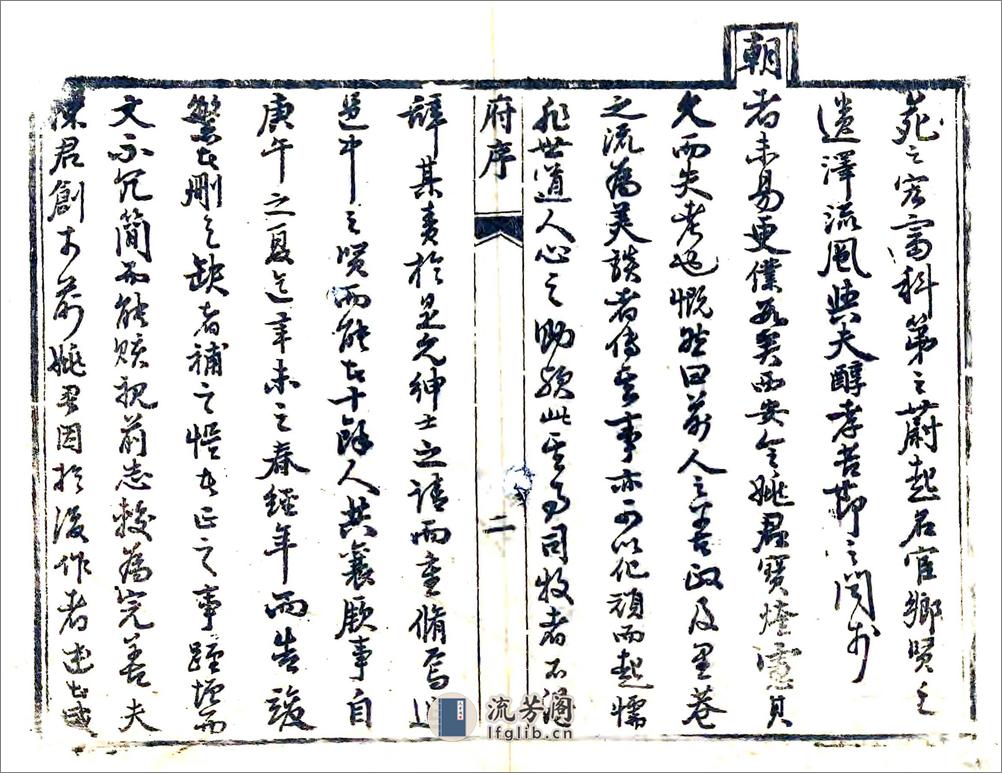 之宏富科第之蔚起名宦鄉賢之
遺澤流風與夫醇孝苦節之聞於
朝者未易更僕數矣西安令姚君寶煃慮其
久而失考也慨然曰前人之善政及里巷
之流為美談者傳其事亦可以化頑而起懦
非世道人心之助歟此其為司牧者不
府序
二
辭其責於是允紳士之請而重脩焉延
邑中之賢而能者十餘人共襄厥事自
庚午之夏迄辛未之春經年而告竣
繁者刪之缺者補之悞者正之事雖增而
文不冗簡而能賅視前志較為完善夫
陳君創於前姚君因於後作者述者
流芳阁
lfglib.cn